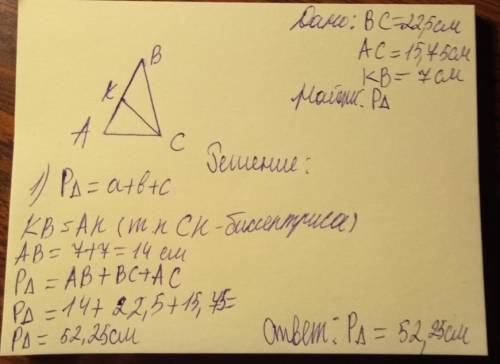 Дано: BC=22,5см
AC=15,75см
KB=7см
Найти: P△
B
K
A
C
Решение:
1) P△=a+b+c
KB=AK (т.к CK-биссектриса)
AB=7+7=14 см
P△=AB+BC+AC
P△=14+22,5+15,75=
P△=52,25см
Ответ: P△=52,25см